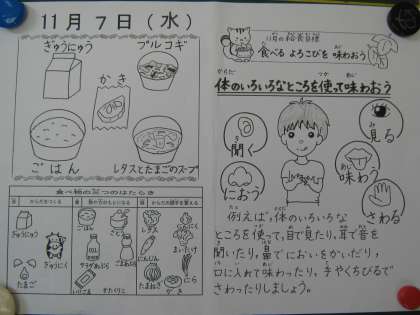 11月7日(水)
ぎゅうにゅう
プルコギ
かき
ごはん
レタスとたまごのスープ
食べ物の三つのはたらき
赤 からだをつくる
黄 熱や力のもとになる
緑 からだの調子を整える
ぎゅうにゅう
ぎゅうにく
たまご
ごはん
さとう
サラダあぶら
ごまあぶら
かたくりこ
レタス
にんじん
たまねぎ
にら
まいたけ
かき
11月の給食目標
食べる よろこびを 味わおう
体のいろいろなところを使って味わおう
からだ
つか
あじ
聞く
におう
見る
味わう
さわる
例えば、体のいろいろな
ところを使って、目で見たり、耳で音を
聞いたり、鼻でにおいをかいだり、
口に入れて味わったり、手やくちびるで
さわったりしましょう。